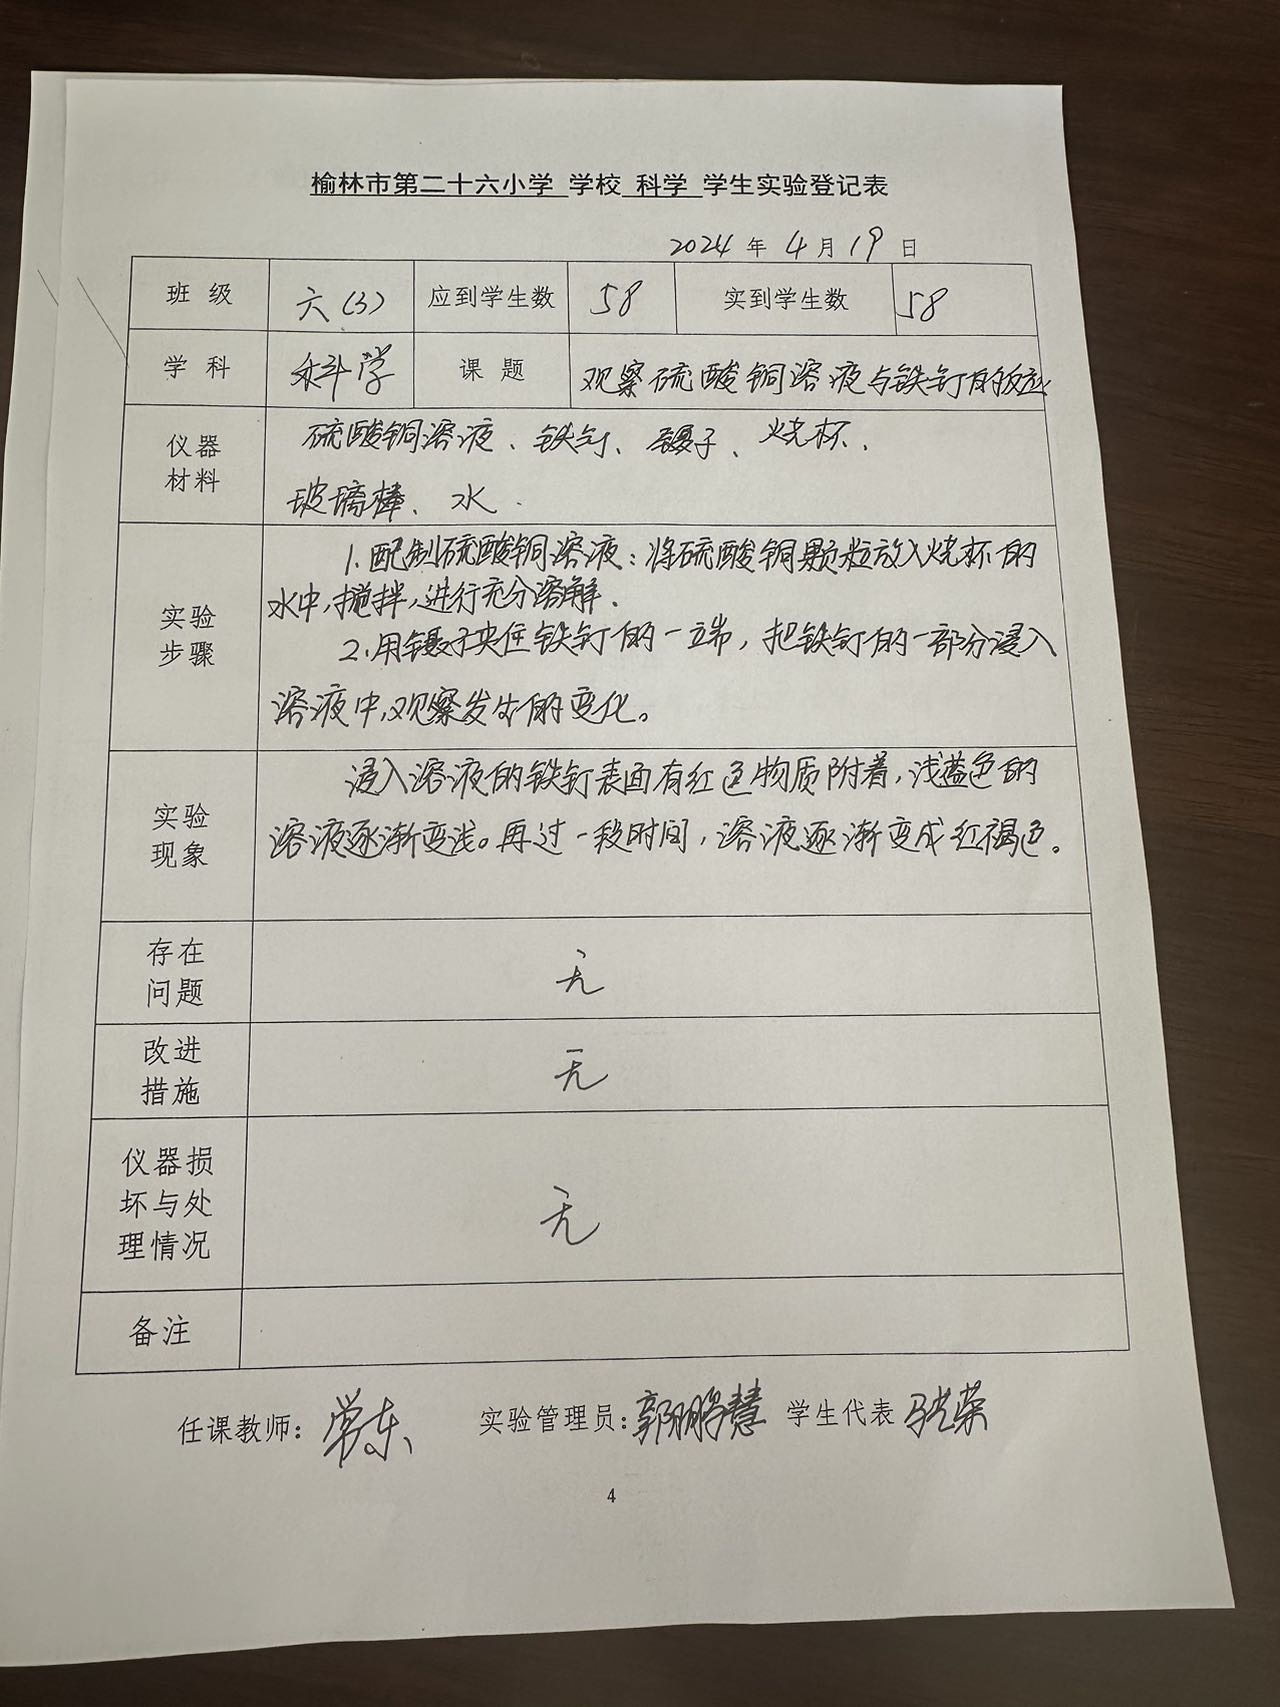 榆林市第二十六小学 学校 科学 学生实验登记表
2024 年 4 月 19 日
班 级 六(3) 应到学生数 58 实到学生数 58
学 科 科学 课 题 观察硫酸铜溶液与铁钉的反应
仪器
材料
硫酸铜溶液、铁钉、镊子、烧杯、
玻璃棒、水.
实验
步骤
1.配制硫酸铜溶液:将硫酸铜颗粒放入烧杯的
水中,搅拌,进行充分溶解.
2.用镊子夹住铁钉的一端,把铁钉的一部分浸入
溶液中,观察发生的变化。
实验
现象
浸入溶液的铁钉表面有红色物质附着,浅蓝色的
溶液逐渐变浅。再过一段时间,溶液逐渐变成红褐色。
存在
问题
无
改进
措施
无
仪器损
坏与处
理情况
无
备注
任课教师: 常东 实验管理员: 郭鹏慧 学生代表
4